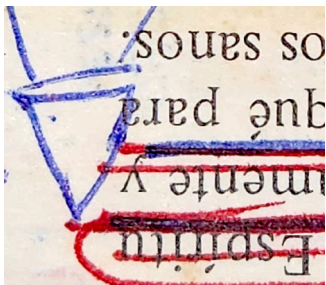 Espíritu
amente y
qué para
os sanos.